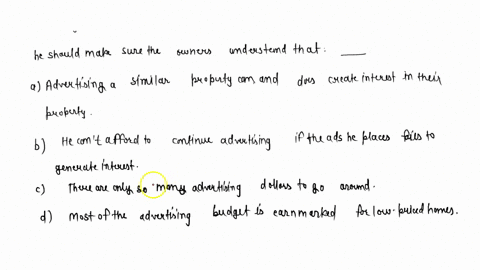 he should make sure the owners understand that: ___
a) Advertising a similar property can, and does create interest in their
property.
b) He can't afford to continue advertising if the ads he places fails to
generate interest.
c) There are only so many advertising dollars to go around.
d) Most of the advertising budget is earnmarked for low-priced homes.